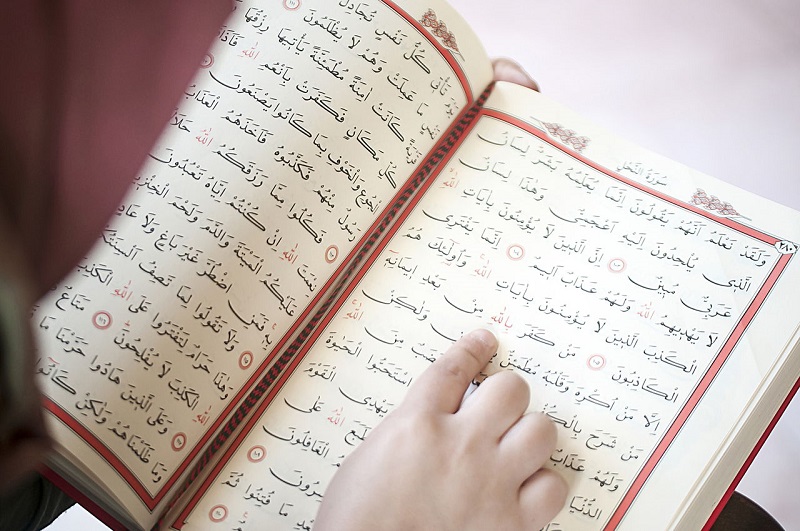 سُورَةُ النَّحْلِ
٢٨٠
وَلَقَدْ نَعْلَمُ اَنَّهُمْ يَقُولُونَ اِنَّمَا يُعَلِّمُهُ بَشَرٌ لِسَانُ
الَّذِي يُلْحِدُونَ اِلَيْهِ اَعْجَمِيٌّ وَهٰذَا لِسَانٌ
عَرَبِيٌّ مُبِينٌ ١٠٣ اِنَّ الَّذِينَ لَا يُؤْمِنُونَ بِاٰيَاتِ اللّٰهِ
لَا يَهْدِيهِمُ اللّٰهُ وَلَهُمْ عَذَابٌ اَلِيمٌ ١٠٤ اِنَّمَا يَفْتَرِي
الْكَذِبَ الَّذِينَ لَا يُؤْمِنُونَ بِاٰيَاتِ اللّٰهِ وَاُولٰئِكَ هُمُ
الْكَاذِبُونَ ١٠٥ مَنْ كَفَرَ بِاللّٰهِ مِنْ بَعْدِ اِيمَانِهِ
اِلَّا مَنْ اُكْرِهَ وَقَلْبُهُ مُطْمَئِنٌّ وَلٰكِنْ
مَنْ شَرَحَ مِنَ اللّٰهِ
وَلَهُمْ عَذَابٌ اسْتَحَبُّوا الْحَيٰوةَ
الدُّنْيَا يَهْدِي الْقَوْمَ
اللّٰهُ عَلٰى
الْغَافِلُونَ ١٠٨
مَا فُتِنُوا ثُمَّ
كُلُّ نَفْسٍ تُجَادِلُ
مَا عَمِلَتْ وَهُمْ لَا يُظْلَمُونَ ١١١
كَانَتْ اٰمِنَةً مُطْمَئِنَّةً يَأْتِيهَا رِزْقُهَا
كُلِّ مَكَانٍ فَكَفَرَتْ بِاَنْعُمِ اللّٰهِ
الْجُوعِ وَالْخَوْفِ بِمَا كَانُوا يَصْنَعُونَ
رَسُولٌ مِنْهُمْ فَكَذَّبُوهُ فَاَخَذَهُمُ الْعَذَابُ
١١٣ فَكُلُوا مِمَّا رَزَقَكُمُ اللّٰهُ
نِعْمَتَ اللّٰهِ اِنْ كُنْتُمْ اِيَّاهُ تَعْبُدُونَ
عَلَيْكُمُ الْمَيْتَةَ وَالدَّمَ وَلَحْمَ
بِهِ فَمَنِ اضْطُرَّ غَيْرَ بَاغٍ وَلَا عَادٍ
١١٥ وَلَا تَقُولُوا لِمَا تَصِفُ
وَهٰذَا حَرَامٌ لِتَفْتَرُوا عَلَى اللّٰهِ الْكَذِبَ
اللّٰهِ الْكَذِبَ لَا يُفْلِحُونَ ١١٦ مَتَاعٌ
١١٧ وَعَلَى الَّذِينَ هَادُوا حَرَّمْنَا مَا
وَمَا ظَلَمْنَاهُمْ وَلٰكِنْ كَانُوا